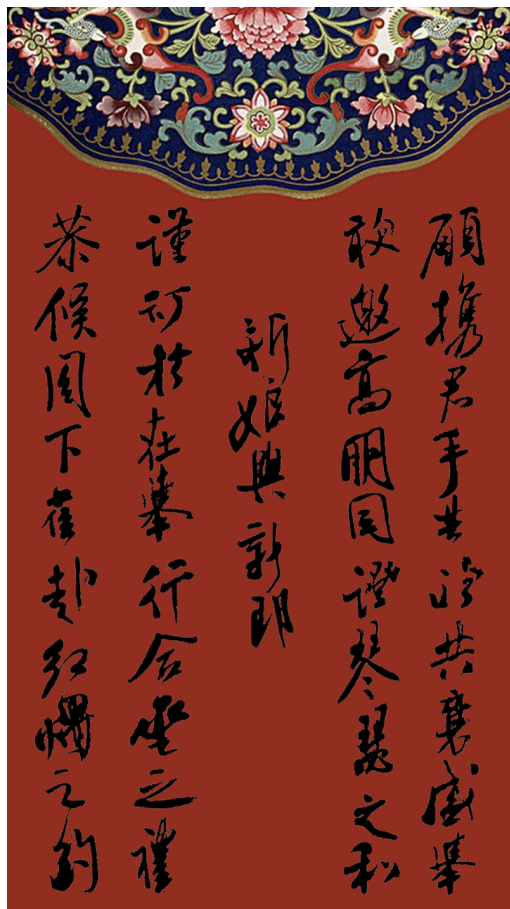 願攜君手共 共襄盛舉
敢邀高明同證琴瑟之和
新娘與新郎
謹訂於在舉行合巹之禮
恭候閣下舊赴紅燭之約